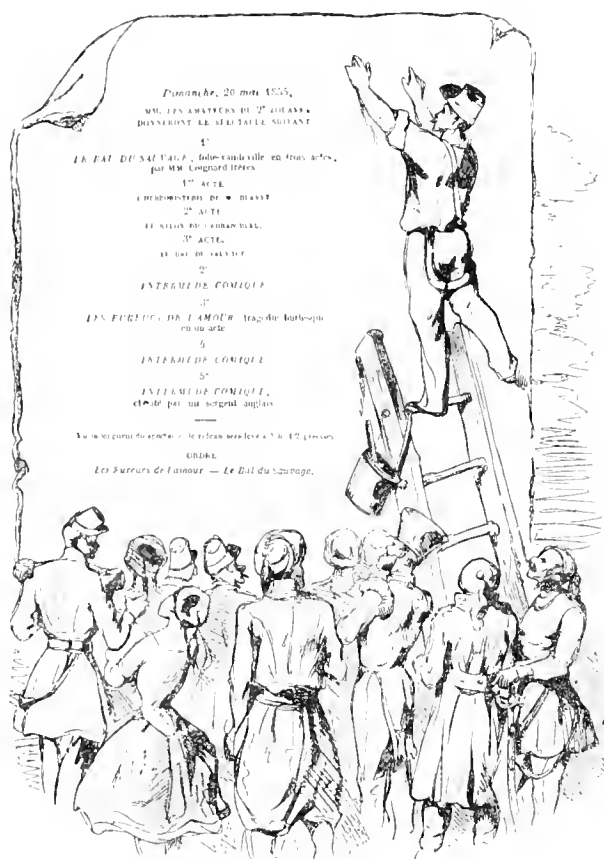 Dimanche, 20 mai 1855,
MM. LES AMATEURS DU 2e ZOUAVES
DONNERONT LE SPECTACLE SUIVANT
1°
LE BAL DU SAUVAGE, folie-vaudeville en trois actes,
par MM. Cogniard frères
1er ACTE
L'HERBORISTERIE DE
2e ACTE
LE SALON DE
3e ACTE.
LE BAL DU SAUVAGE
2°
INTERMÈDE COMIQUE
3°
LES FUREURS DE L'AMOUR, tragédie burlesque
en un acte
4
INTERMÈDE COMIQUE
5°
INTERMÈDE COMIQUE,
par un sergent anglais
Vu la longueur du spectacle, le rideau sera levé à 7 h. 1/2 précises
ORDRE
Les Fureurs de l'amour. — Le Bal du Sauvage.